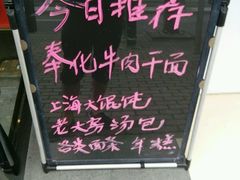 今日推荐
奉化牛肉干面
上海大馄饨
老大房汤包
各类面条 年糕